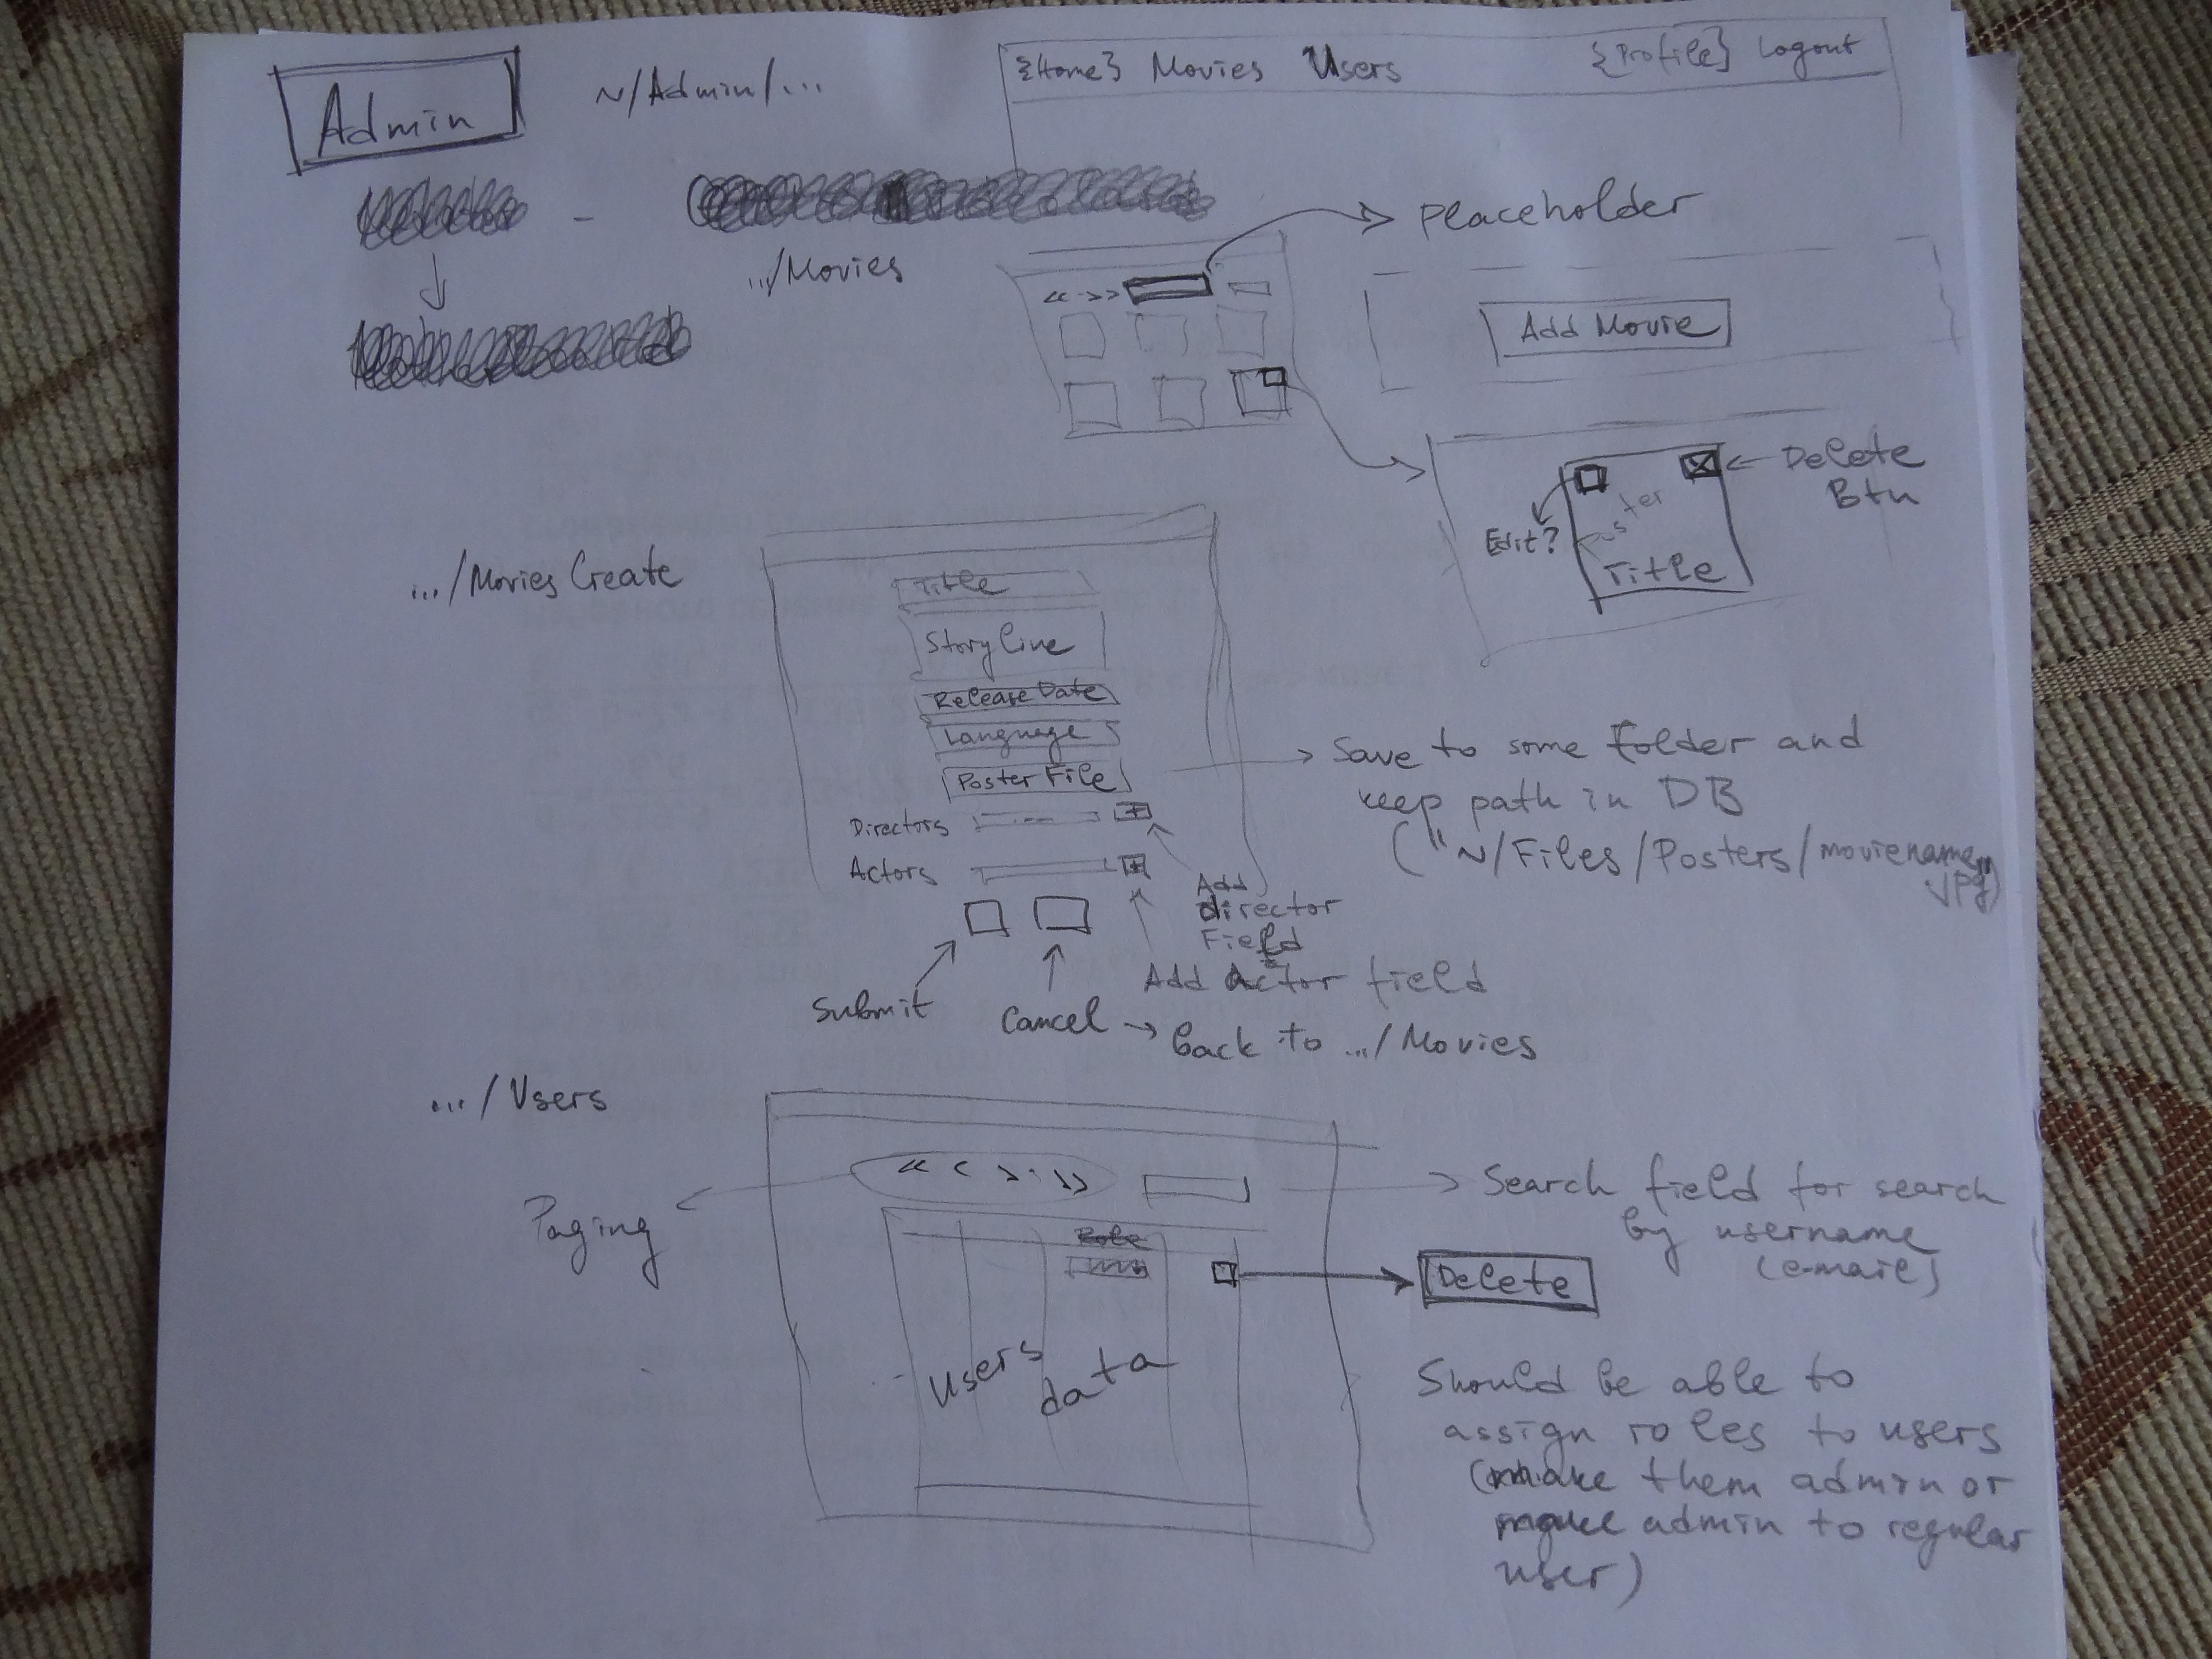 Admin
~/Admin/...
{Home} Movies Users {Profile} Logout
.../Movies
<< - >>
placeholder
Add Movie
Delete
Btn
Edit?
Poster
Title
.../Movies Create
Title
Storyline
Release Date
Language
Poster File
Directors
+
Actors
+
Save to some folder and
keep path in DB
("~/Files/Posters/moviename.
jpg")
Add
director
Field
Add Actor field
Submit
Cancel → back to .../Movies
.../Users
<< < > : >>
Paging
Search field for search
by username
(e-mail)
Role
Delete
Users
data
Should be able to
assign roles to users
(make them admin or
make admin to regular
user)